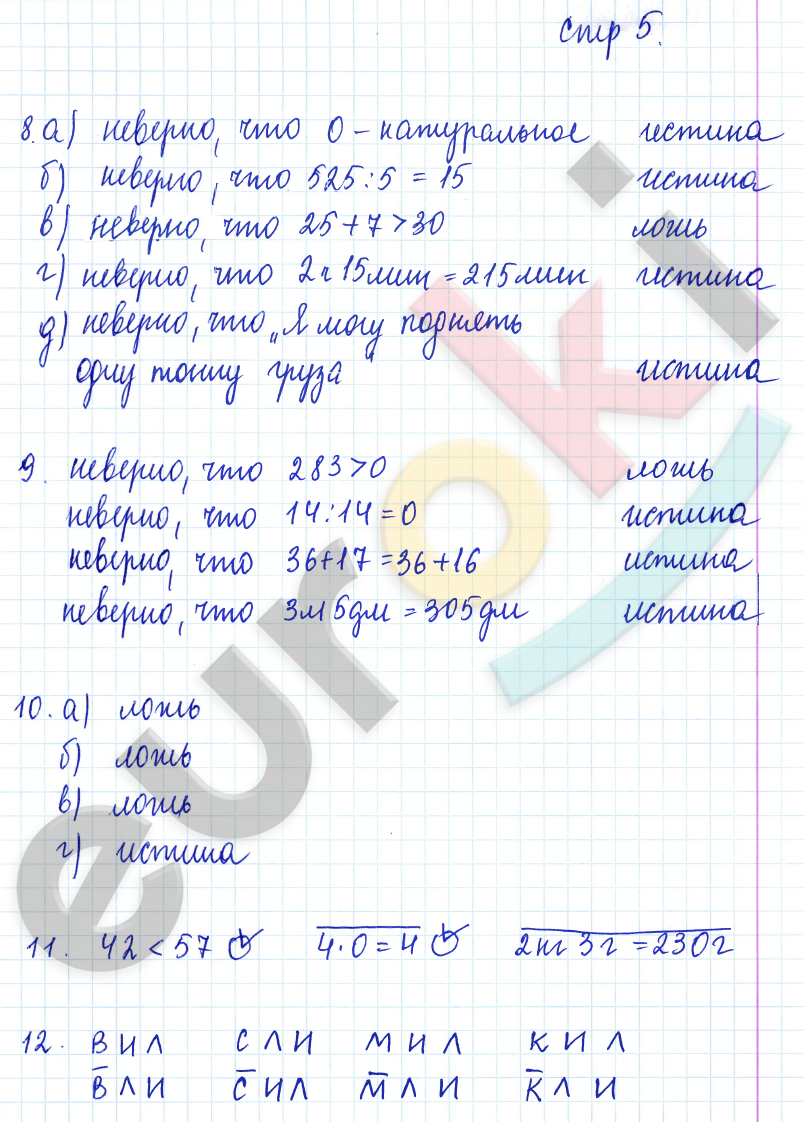 стр 5.
8. а) неверно, что 0 – натуральное истина
б) неверно, что 525:5 = 15 истина
в) неверно, что 25+7>30 лошь
г) неверно, что 2ч 15мин = 215мин истина
д) неверно, что „Я могу поднять
одну тонну груза“ истина
9. неверно, что 283>0 лошь
неверно, что 14:14=0 истина
неверно, что 36+17=36+16 истина
неверно, что 3м 5дм = 305дм истина
10. а) ложь
б) ложь
в) ложь
г) истина
11. 42<57 4·0=4 2кг 3г =230г
12. В И Л С Л И М И Л К И Л
В̅ Л И С̅ И Л М̅ Л И К̅ Л И
euroki